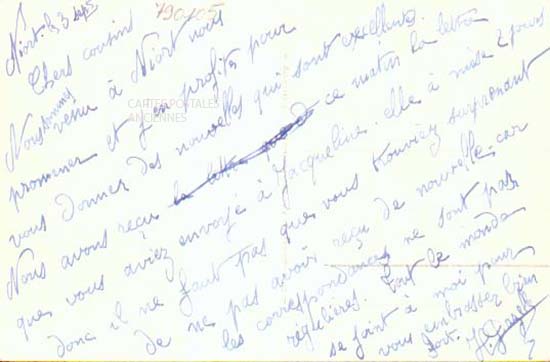 790105
Niort. le 3 Sept
Chers cousins
Nous sommes venu à Niort nous
promener et j'en profite pour
vous donner des nouvelles qui sont excellentes.
Nous avons reçu la lettre ce matin la lettre
que vous aviez envoyé à Jacqueline. elle à mise 2 jours
donc il ne faut pas que vous trouviez surprenant
de ne pas avoir reçu de nouvelle car
les correspondances ne sont pas
régulières. Tout le monde
se joint à moi pour
vous embrasser bien
fort.
CARTES POSTALES
ANCIENNES